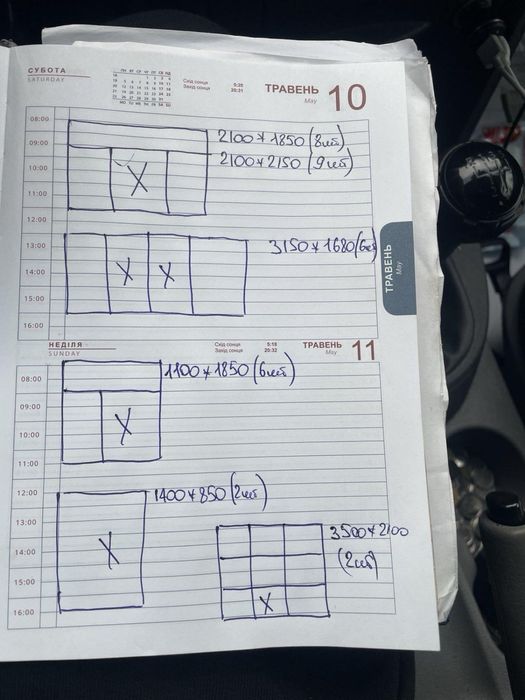 СУБОТА
SATURDAY
Схід сонця 5:20
Захід сонця 20:31
ТРАВЕНЬ 10
May
08:00
09:00
10:00
11:00
12:00
13:00
14:00
15:00
16:00
2100*1850 (8шт)
2100*2150 (9шт)
X
3150*1680 (6шт
X X
ТРАВЕНЬ
May
НЕДІЛЯ
SUNDAY
Схід сонця 5:18
Захід сонця 20:32
ТРАВЕНЬ 11
May
08:00
09:00
10:00
11:00
12:00
13:00
14:00
15:00
16:00
1100*1850 (6шт)
X
1400*850 (2шт)
X
3500*2100
(2шт)
X